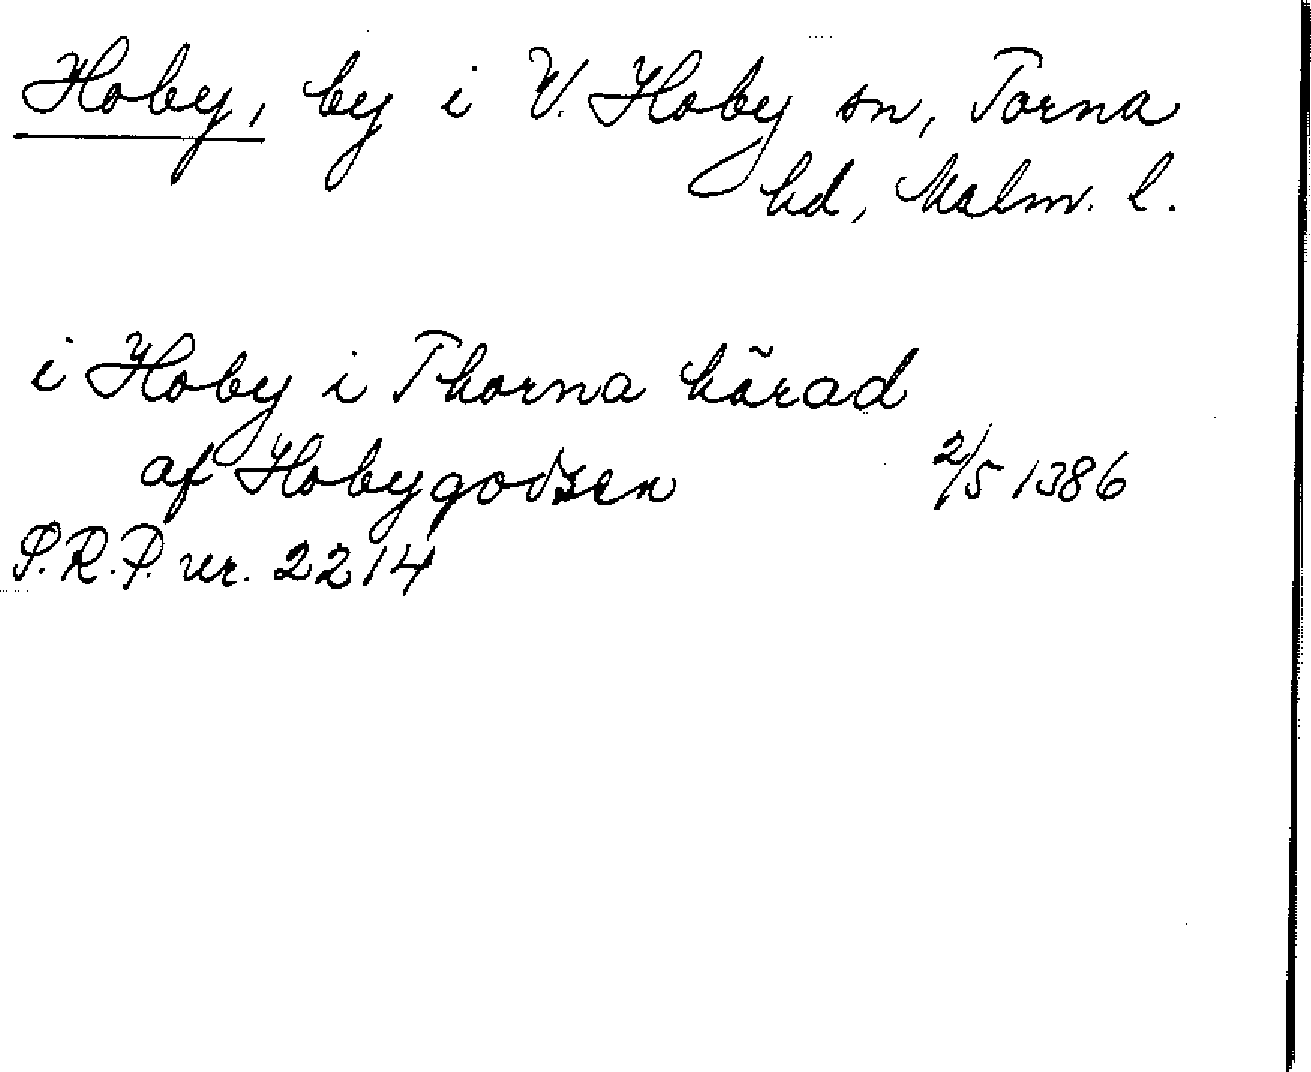 Hoby, by i V. Hoby sn, Torna
hd, Malm. l.
i Hoby i Thorna härad
af Hobygodsen 2/5 1386
S.R.P. nr. 2214